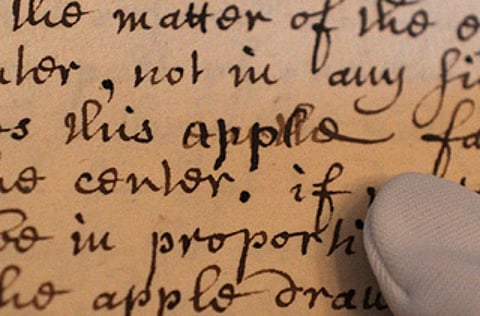 the matter of the e
nter, not in any si
s this apple fa
he center. if
be in proporti
he apple draw